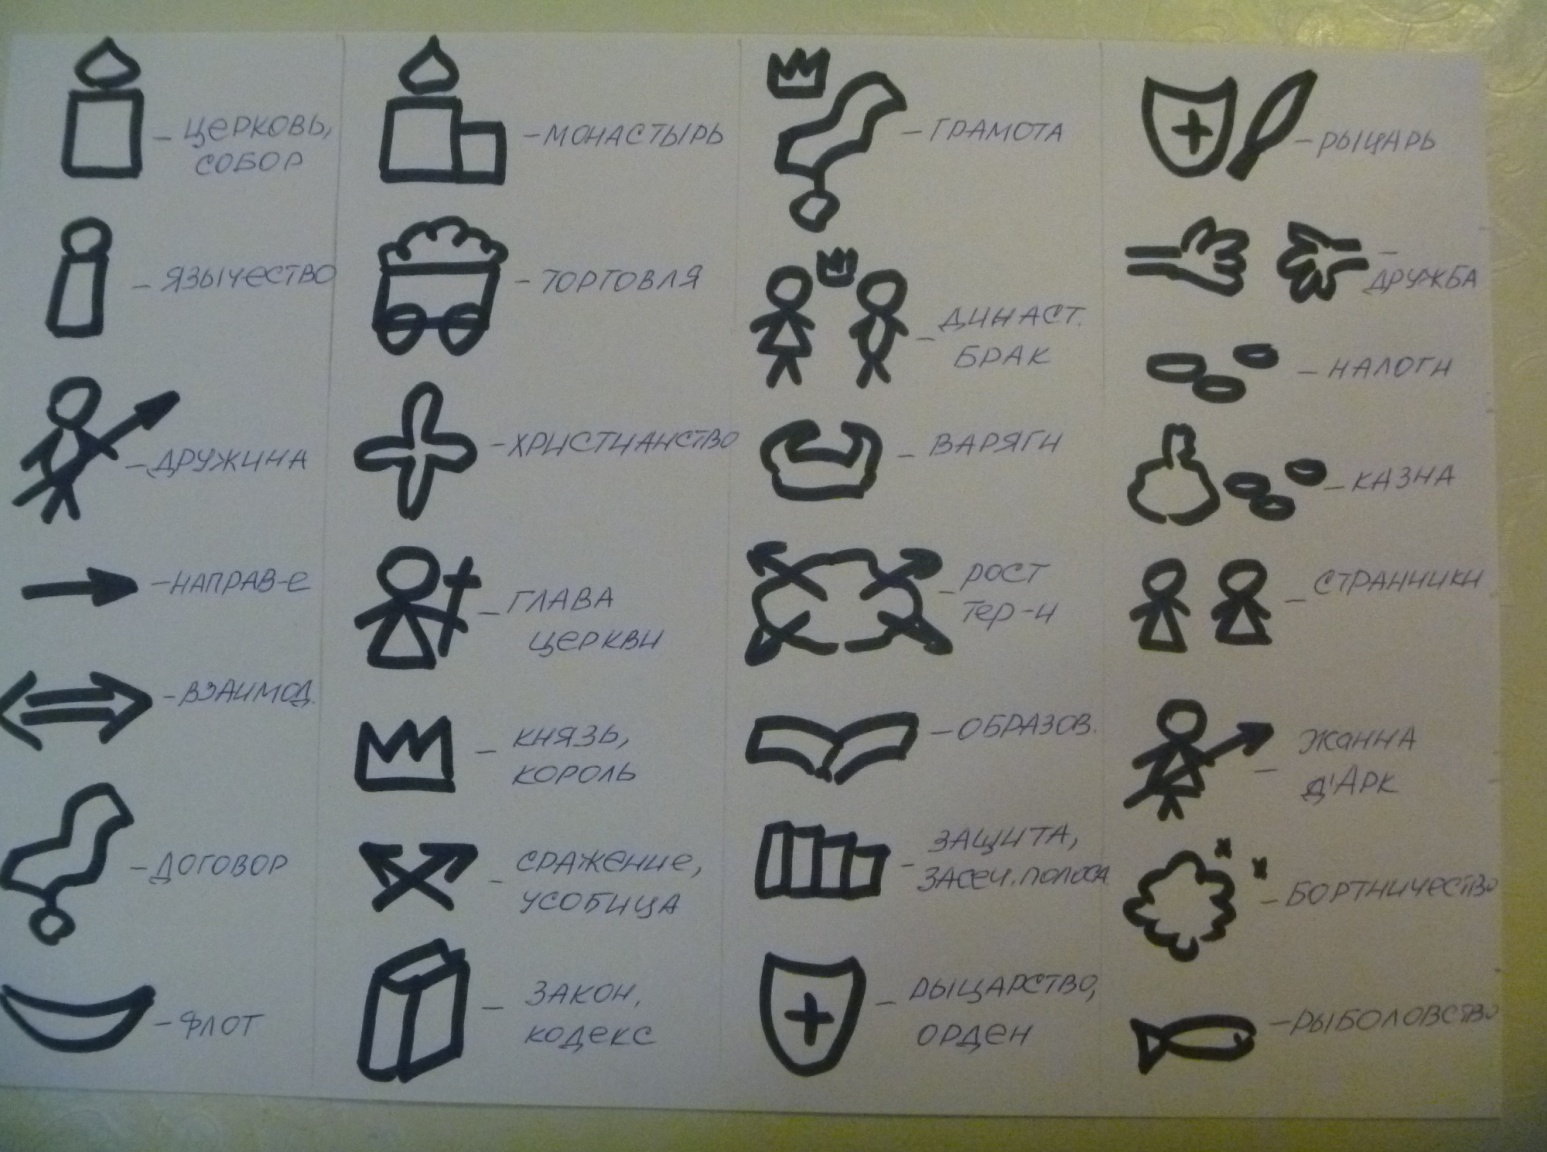 – церковь,
собор
– язычество
– дружина
– направ-е
– взаимод.
– договор
– флот
– монастырь
– торговля
– христианство
– глава
церкви
– князь,
король
– сражение,
усобица
– закон,
кодекс
– грамота
– династ.
брак
– варяги
– рост
тер-и
– образов.
– защита,
засеч. полоса
– рыцарство,
орден
– рыцарь
–
дружба
– налоги
– казна
– странники
– Жанна
д'Арк
– бортничество
– рыболовство